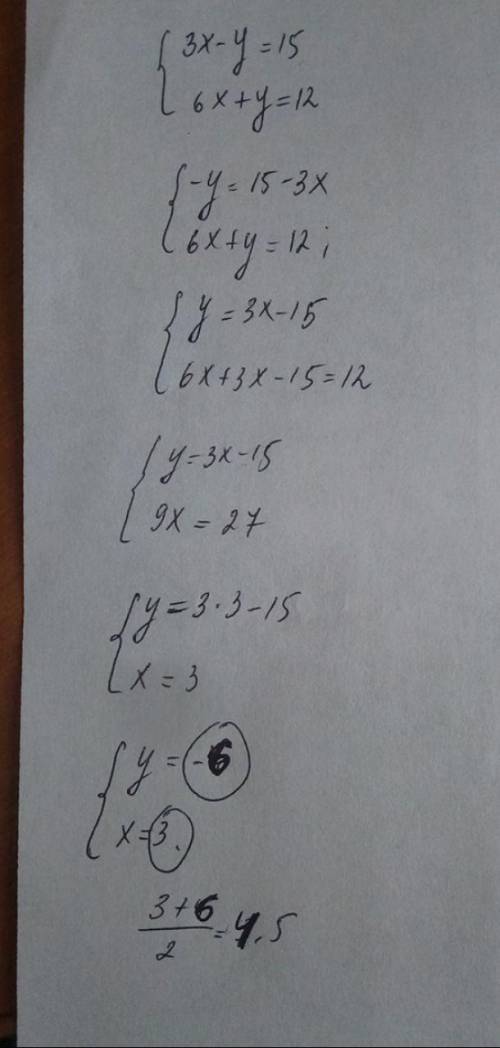 3x-y=15
6x+y=12
-y=15-3x
6x+y=12;
y=3x-15
6x+3x-15=12
y=3x-15
9x=27
y=3·3-15
x=3
y=-6
x=3.
3+6
2
=4.5